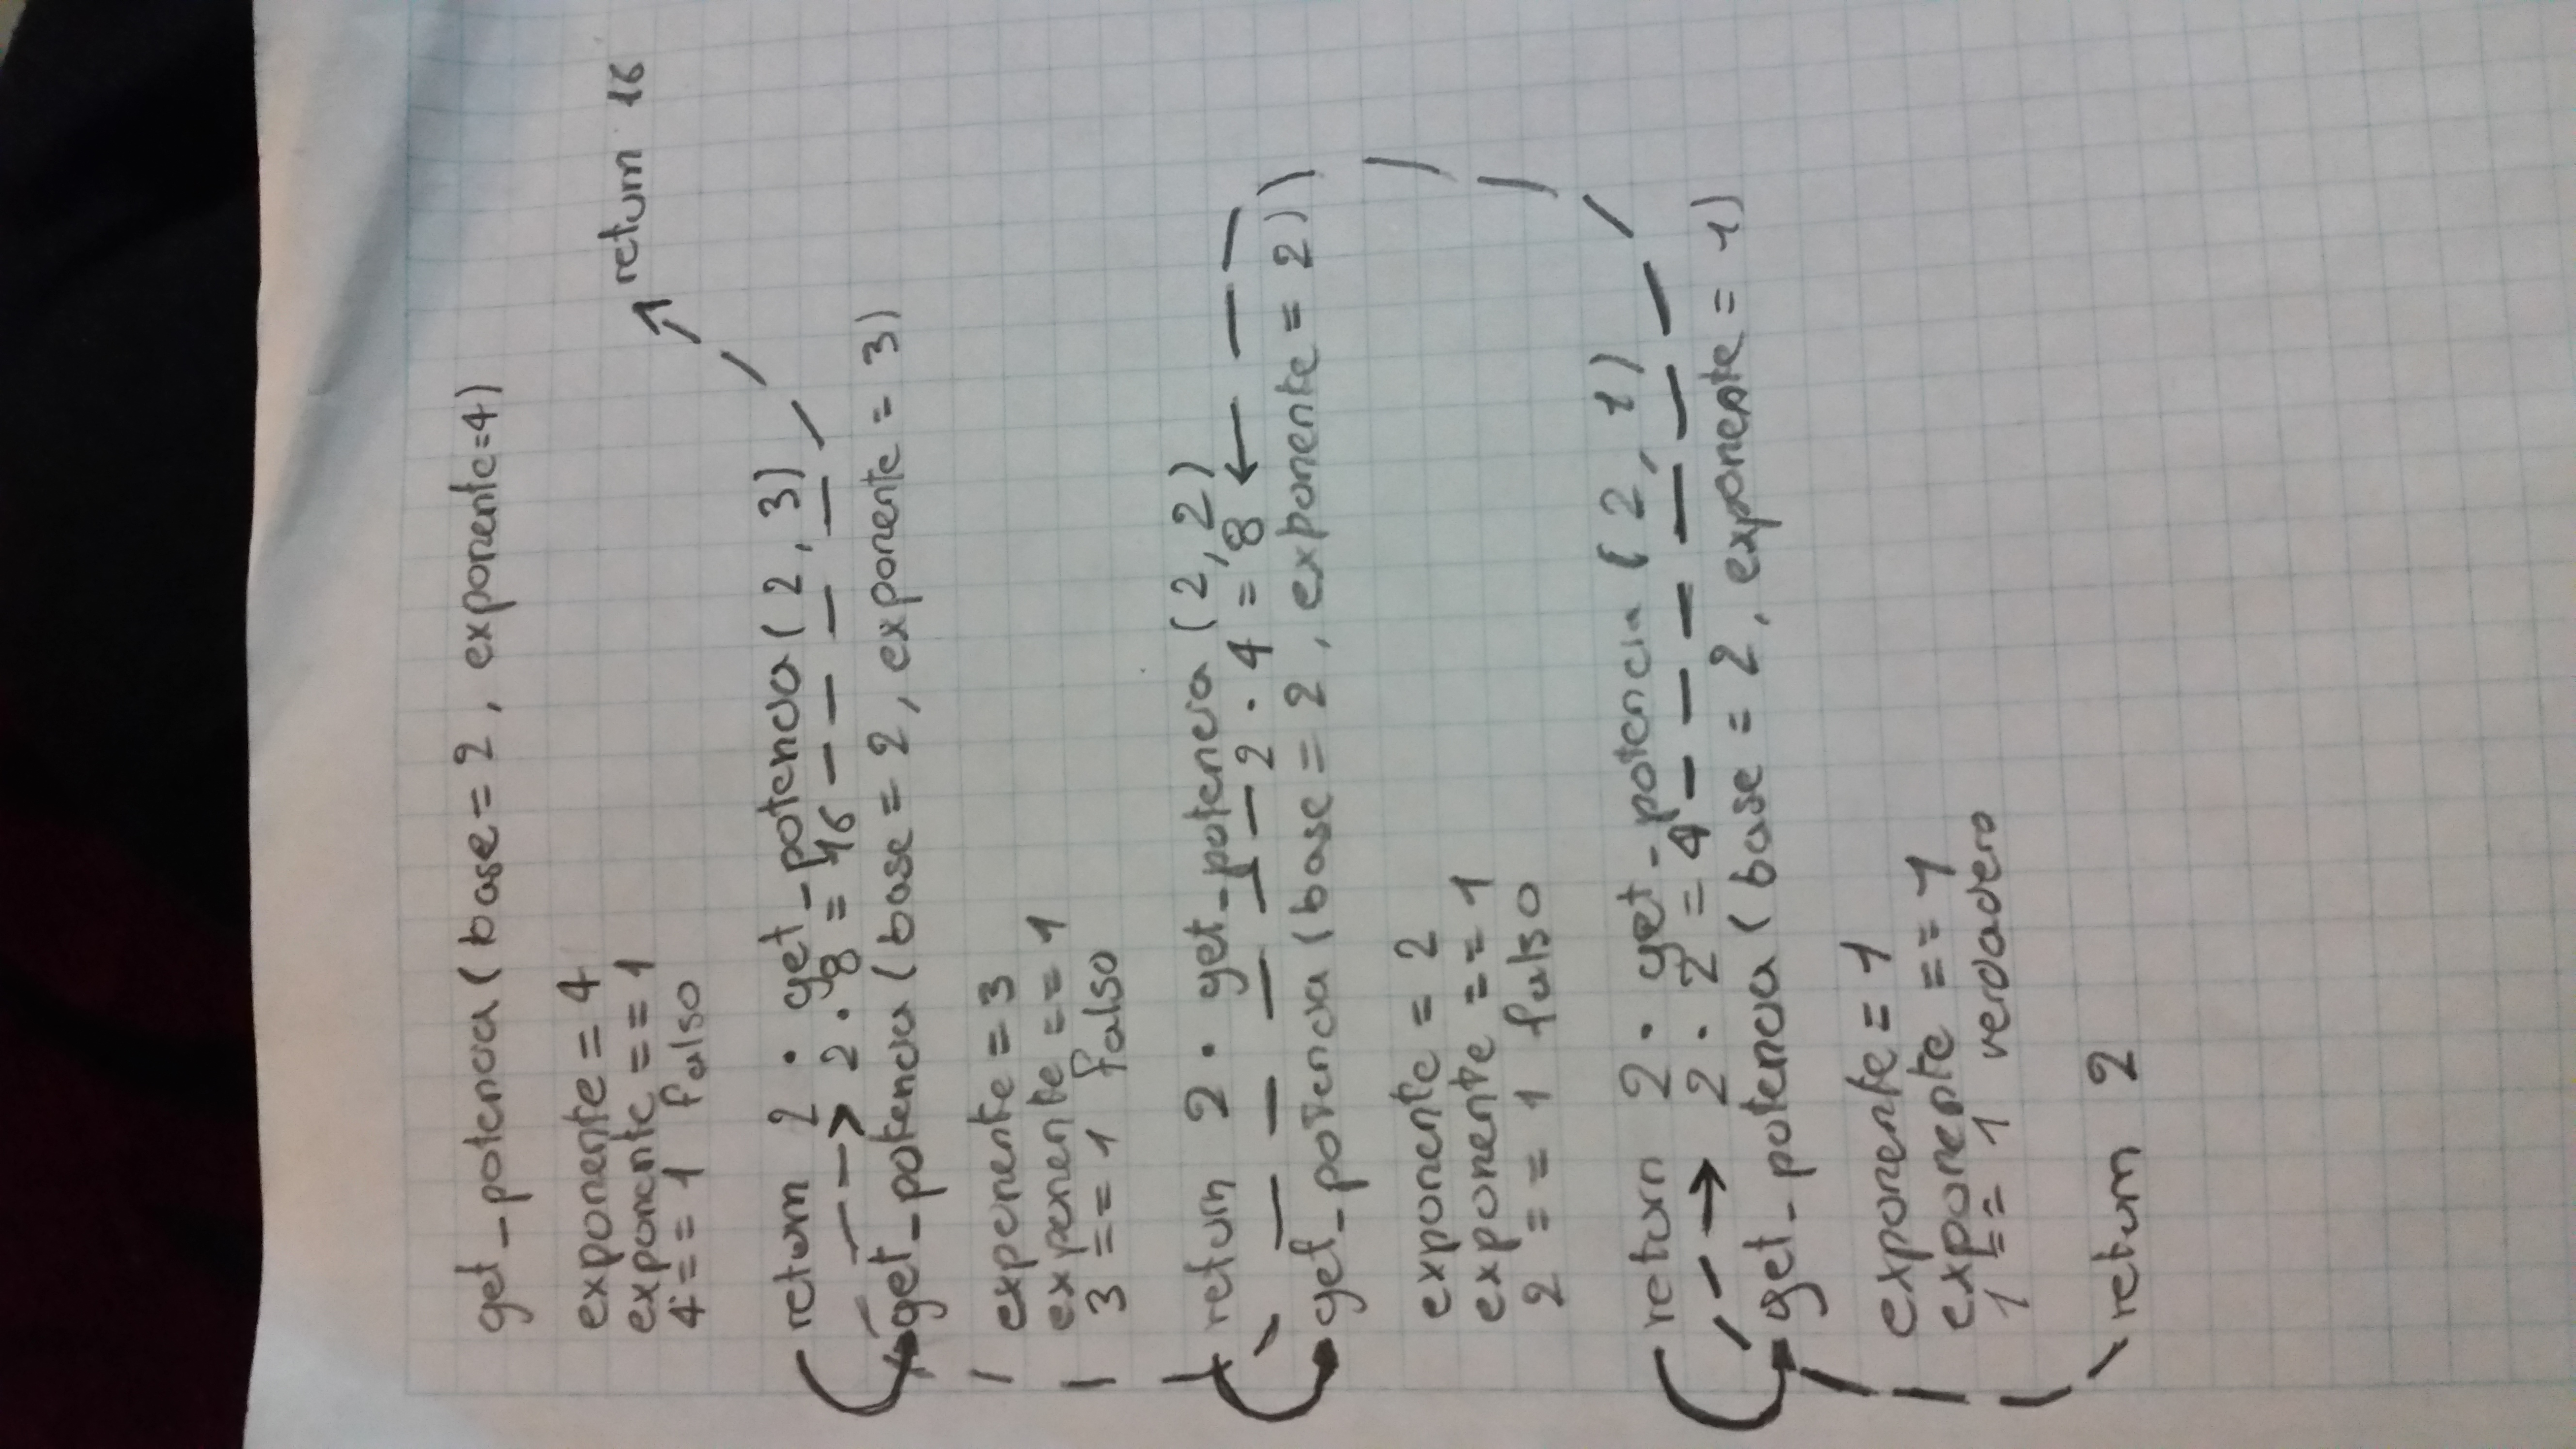 get_potencia (base = 2, exponente=4)
exponente = 4
exponente == 1
4 == 1 falso
return 16
return 2 · get_potencia (2, 3)
2 · 8 = 16
get_potencia (base = 2, exponente = 3)
exponente = 3
exponente == 1
3 == 1 falso
return 2 · get_potencia (2, 2)
2 · 4 = 8
get_potencia (base = 2, exponente = 2))
exponente = 2
exponente == 1
2 == 1 falso
return 2 · get_potencia (2, 1)
2 · 2 = 4
get_potencia (base = 2, exponente = 1)
exponente = 1
exponente == 1
1 == 1 verdadero
return 2